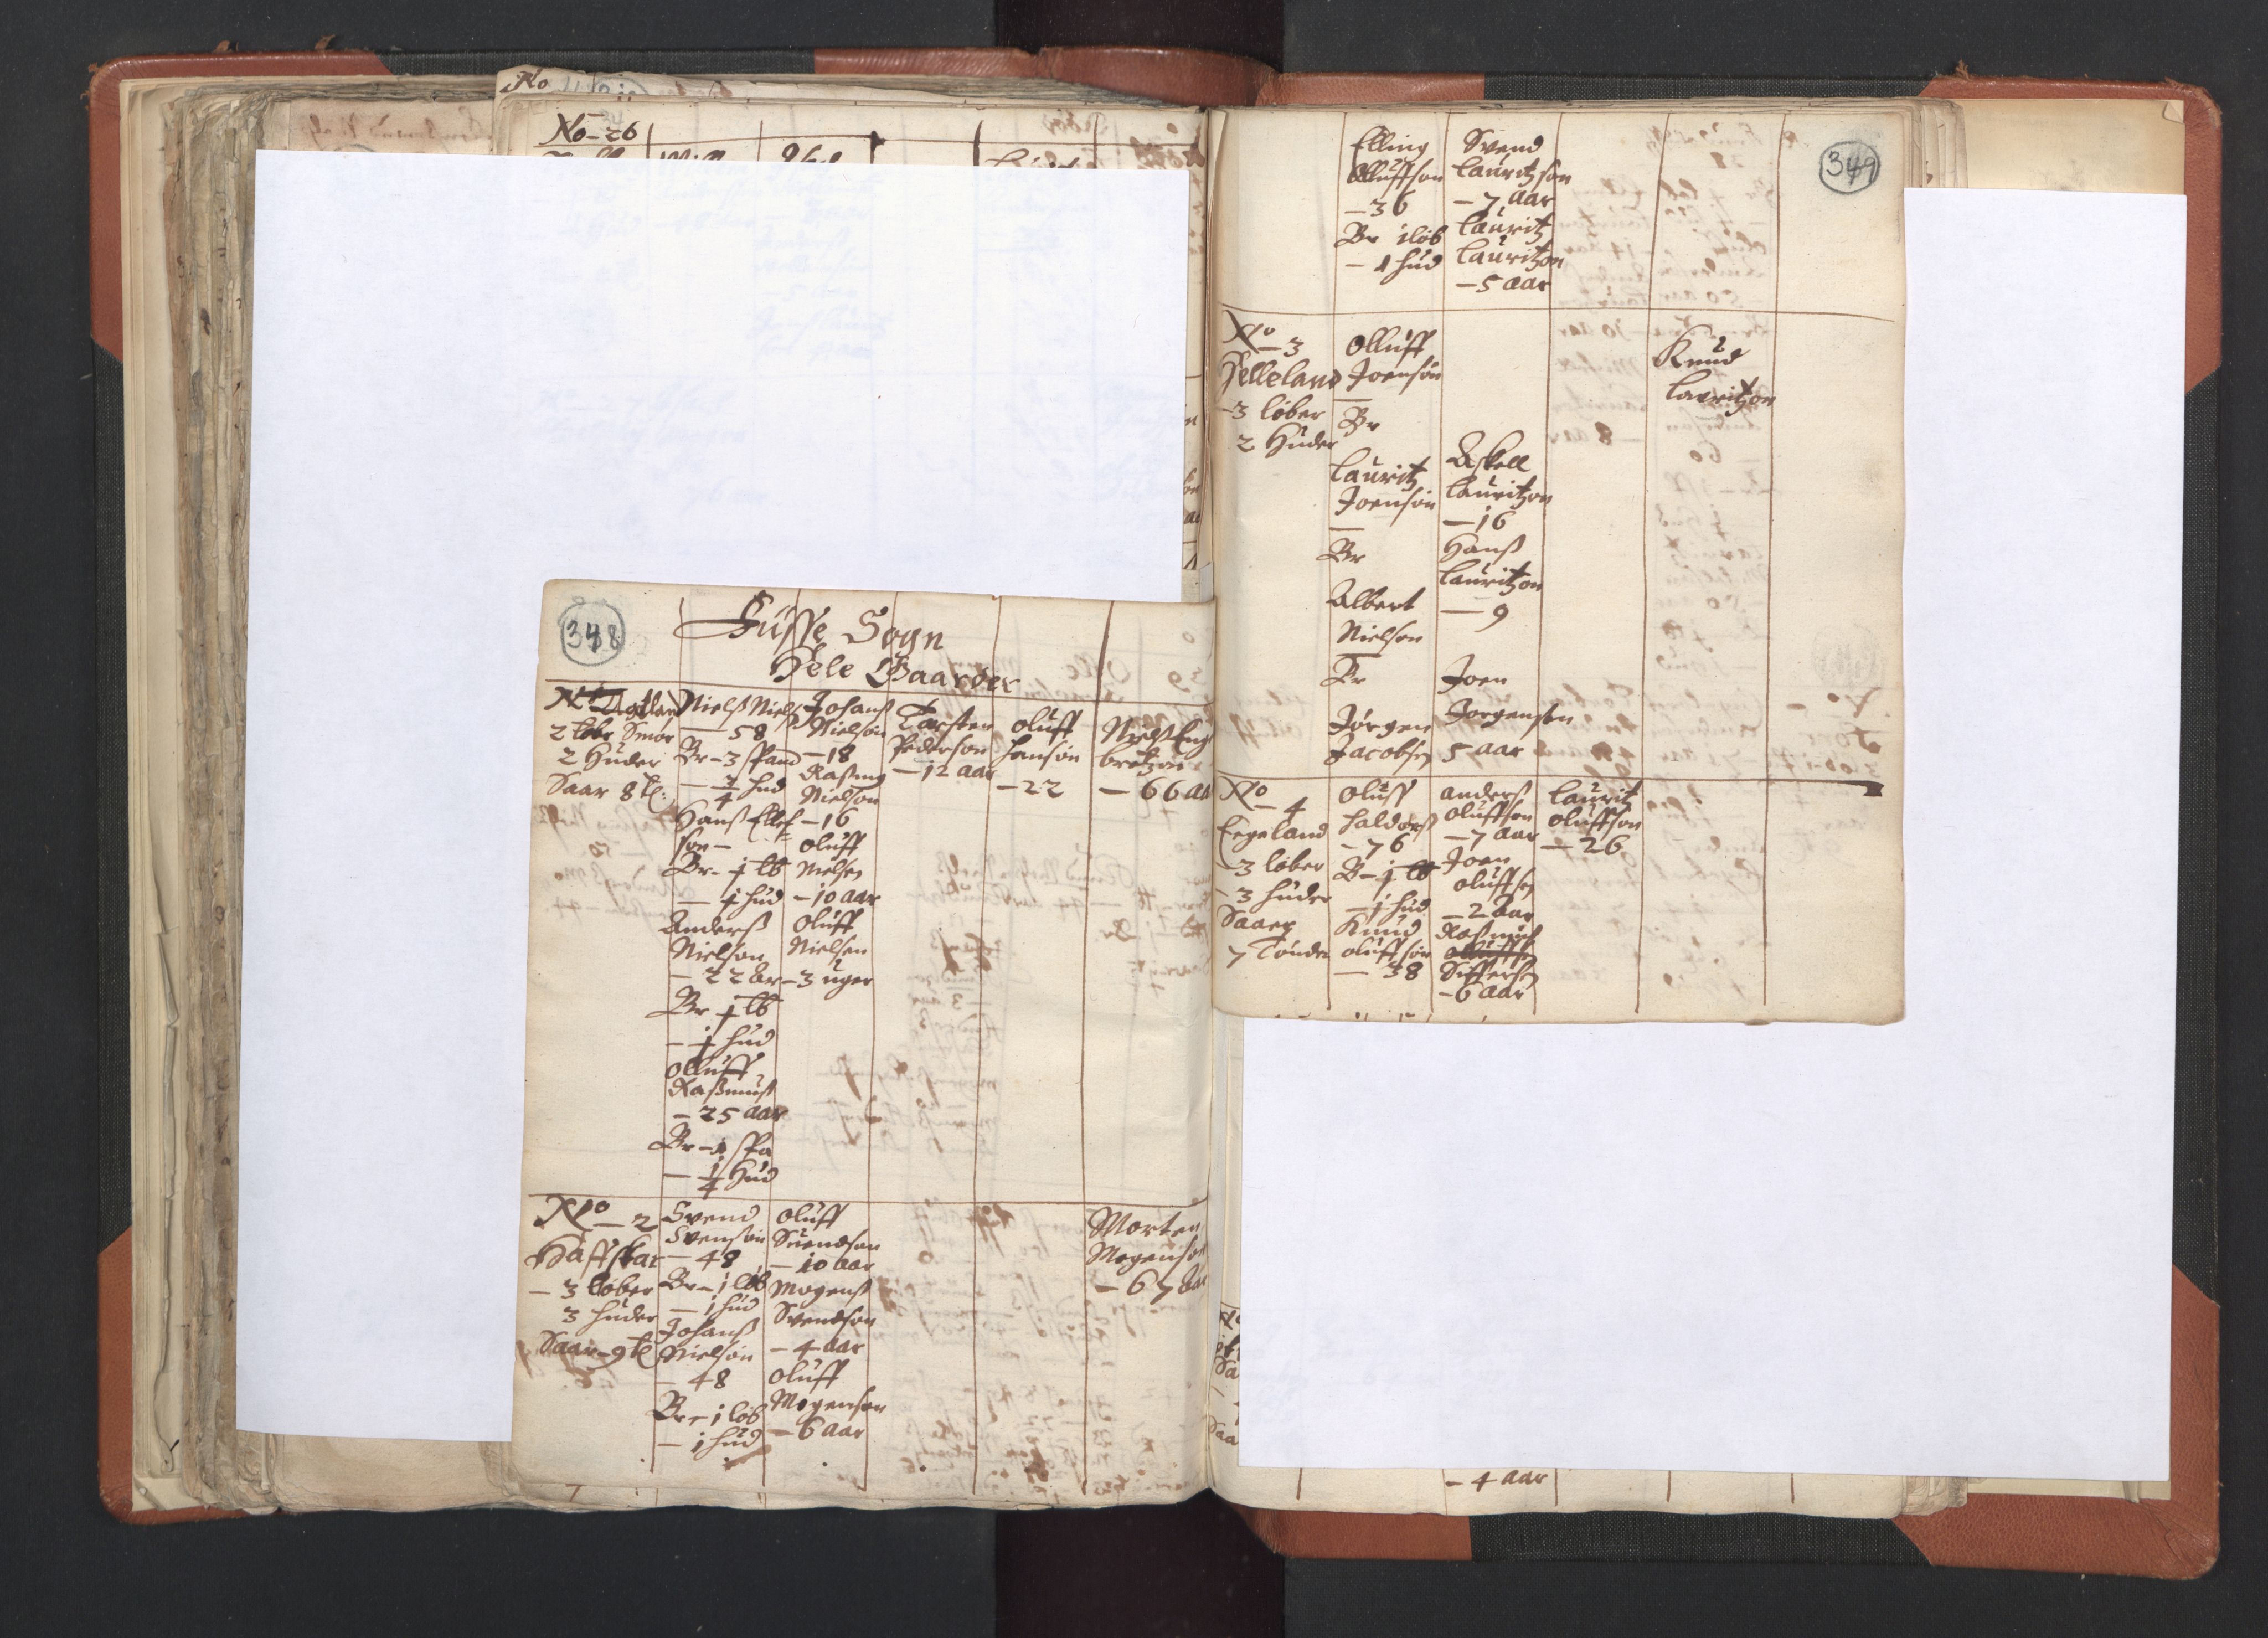 No-26
348
Fuisse Sogn
Hele Gaarder
2 løbr Smør
2 Huder
Saar 8 t:
Nielß Niels
-58
Br-3 span
hud
Hanß Ellef
son-
Br-1 lb
-1 hud
Anderß
Nielson
-22 ar
Br 1 lb
-1 hud
olluff
Raßmuß
-25 aar
Br-1 spa
-1/4 Hud
Johanß
Nielson
-18
Raßmuß
Nielson
-16
oluff
Nielsen
-10 aar
oluff
Nielsen
-3 uger
Torsten
Pederson
-12 aar
oluff
hanson
-22
Nielß Eng
bretzon
-66 aa
No-2
Haffskar
-3 løber
3 huder
Saar-9 t
Svend
Svenson
-48
Br-1 løb
-1 hud
Johanß
Nielson
-48
Br-1 løb
-1 hud
oluff
Suendson
-10 aar
Mogenß
Svendson
-4 aar
oluff
Mogenson
-6 aar
Morten
Mogenso
-67 aa
349
Elling
olluffson
-36
Br 1 løb
-1 hud
Svend
Lauritzson
-7 aar
Lauritz
Lauritzon
-5 aar
No-3
Helleland
-3 løber
2 Huder
olluff
Joenson
Br
Lauritz
Joenson
Br
Albert
Nielson
Br
Jørgen
Jacobsen
Askell
Lauritzon
-16
Hanß
Lauritzon
-9
Joen
Jorgenson
5 aar
Knud
Lavritzon
No-4
Eegeland
-3 løber
-3 huder
Saar
7 Tønder
oluff
haldorß
-76
B-1 lb
-1 hud
Knud
oluffson
-38
anderß
oluffson
-7 aar
Joen
oluffsen
-2 aar
Raßmuß
oluffsen
Siffersen
-6 aar
Lauritz
oluffson
-26
-4 aar